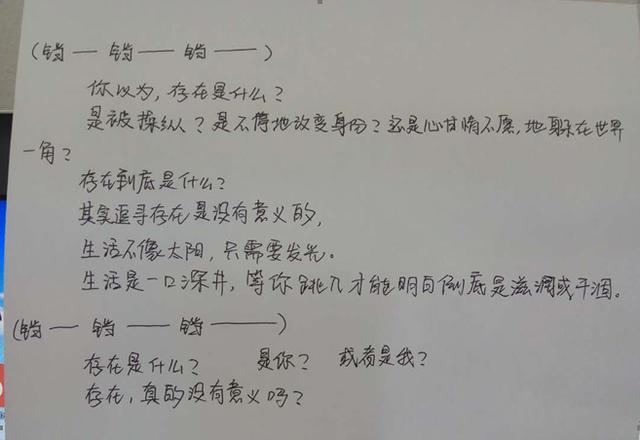 (铛—— 铛—— 铛——)
你以为,存在是什么?
是被操纵?是不停地改变身份?还是心甘情不愿,地躲在世界
一角?
存在到底是什么?
其实追寻存在是没有意义的,
生活不像太阳,只需要发光。
生活是一口深井,等你跳入才能明白倒底是滋润或干涸。
(铛— 铛—— 铛———)
存在是什么? 是你? 或者是我?
存在,真的没有意义吗?